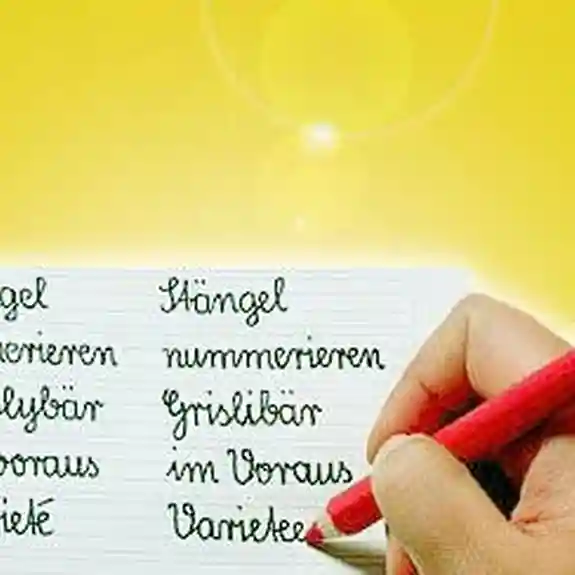 gel Stängel
erieren nummerieren
lybär Grislibär
voraus im Voraus
ieté Varietee